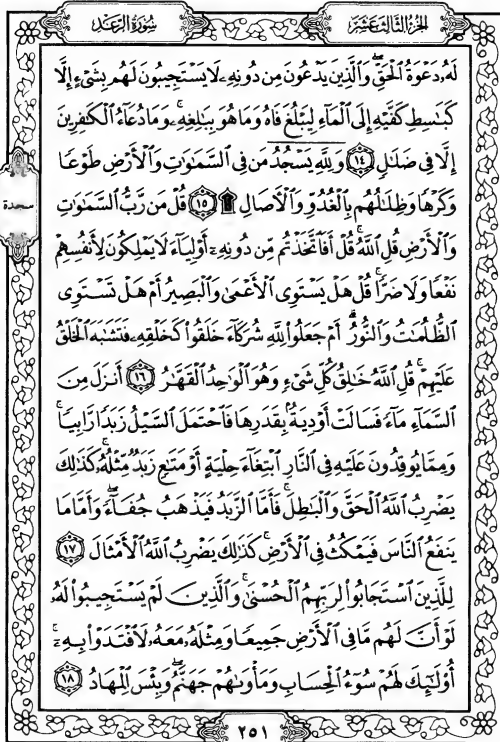 الجزء الثالث عشر
سورة الرعد
لَهُۥ دَعْوَةُ ٱلْحَقِّ ۖ وَٱلَّذِينَ يَدْعُونَ مِن دُونِهِۦ لَا يَسْتَجِيبُونَ لَهُم بِشَىْءٍ إِلَّا
كَبَٰسِطِ كَفَّيْهِ إِلَى ٱلْمَآءِ لِيَبْلُغَ فَاهُ وَمَا هُوَ بِبَٰلِغِهِۦ ۚ وَمَا دُعَآءُ ٱلْكَٰفِرِينَ
إِلَّا فِى ضَلَٰلٍ ﴿١٤﴾ وَلِلَّهِ يَسْجُدُ مَن فِى ٱلسَّمَٰوَٰتِ وَٱلْأَرْضِ طَوْعًا
وَكَرْهًا وَظِلَٰلُهُم بِٱلْغُدُوِّ وَٱلْءَاصَالِ ۩ ﴿١٥﴾ قُلْ مَن رَّبُّ ٱلسَّمَٰوَٰتِ
سجدة
وَٱلْأَرْضِ قُلِ ٱللَّهُ ۚ قُلْ أَفَٱتَّخَذْتُم مِّن دُونِهِۦٓ أَوْلِيَآءَ لَا يَمْلِكُونَ لِأَنفُسِهِمْ
نَفْعًا وَلَا ضَرًّا ۚ قُلْ هَلْ يَسْتَوِى ٱلْأَعْمَىٰ وَٱلْبَصِيرُ أَمْ هَلْ تَسْتَوِى
ٱلظُّلُمَٰتُ وَٱلنُّورُ ۗ أَمْ جَعَلُوا۟ لِلَّهِ شُرَكَآءَ خَلَقُوا۟ كَخَلْقِهِۦ فَتَشَٰبَهَ ٱلْخَلْقُ
عَلَيْهِمْ ۚ قُلِ ٱللَّهُ خَٰلِقُ كُلِّ شَىْءٍ وَهُوَ ٱلْوَٰحِدُ ٱلْقَهَّٰرُ ﴿١٦﴾ أَنزَلَ مِنَ
ٱلسَّمَآءِ مَآءً فَسَالَتْ أَوْدِيَةٌۢ بِقَدَرِهَا فَٱحْتَمَلَ ٱلسَّيْلُ زَبَدًا رَّابِيًا ۚ
وَمِمَّا يُوقِدُونَ عَلَيْهِ فِى ٱلنَّارِ ٱبْتِغَآءَ حِلْيَةٍ أَوْ مَتَٰعٍ زَبَدٌ مِّثْلُهُۥ ۚ كَذَٰلِكَ
يَضْرِبُ ٱللَّهُ ٱلْحَقَّ وَٱلْبَٰطِلَ ۚ فَأَمَّا ٱلزَّبَدُ فَيَذْهَبُ جُفَآءً ۖ وَأَمَّا مَا
يَنفَعُ ٱلنَّاسَ فَيَمْكُثُ فِى ٱلْأَرْضِ ۚ كَذَٰلِكَ يَضْرِبُ ٱللَّهُ ٱلْأَمْثَالَ ﴿١٧﴾
لِلَّذِينَ ٱسْتَجَابُوا۟ لِرَبِّهِمُ ٱلْحُسْنَىٰ ۚ وَٱلَّذِينَ لَمْ يَسْتَجِيبُوا۟ لَهُۥ
لَوْ أَنَّ لَهُم مَّا فِى ٱلْأَرْضِ جَمِيعًا وَمِثْلَهُۥ مَعَهُۥ لَٱفْتَدَوْا۟ بِهِۦٓ ۚ
أُو۟لَٰٓئِكَ لَهُمْ سُوٓءُ ٱلْحِسَابِ وَمَأْوَىٰهُمْ جَهَنَّمُ ۖ وَبِئْسَ ٱلْمِهَادُ ﴿١٨﴾
٢٥١